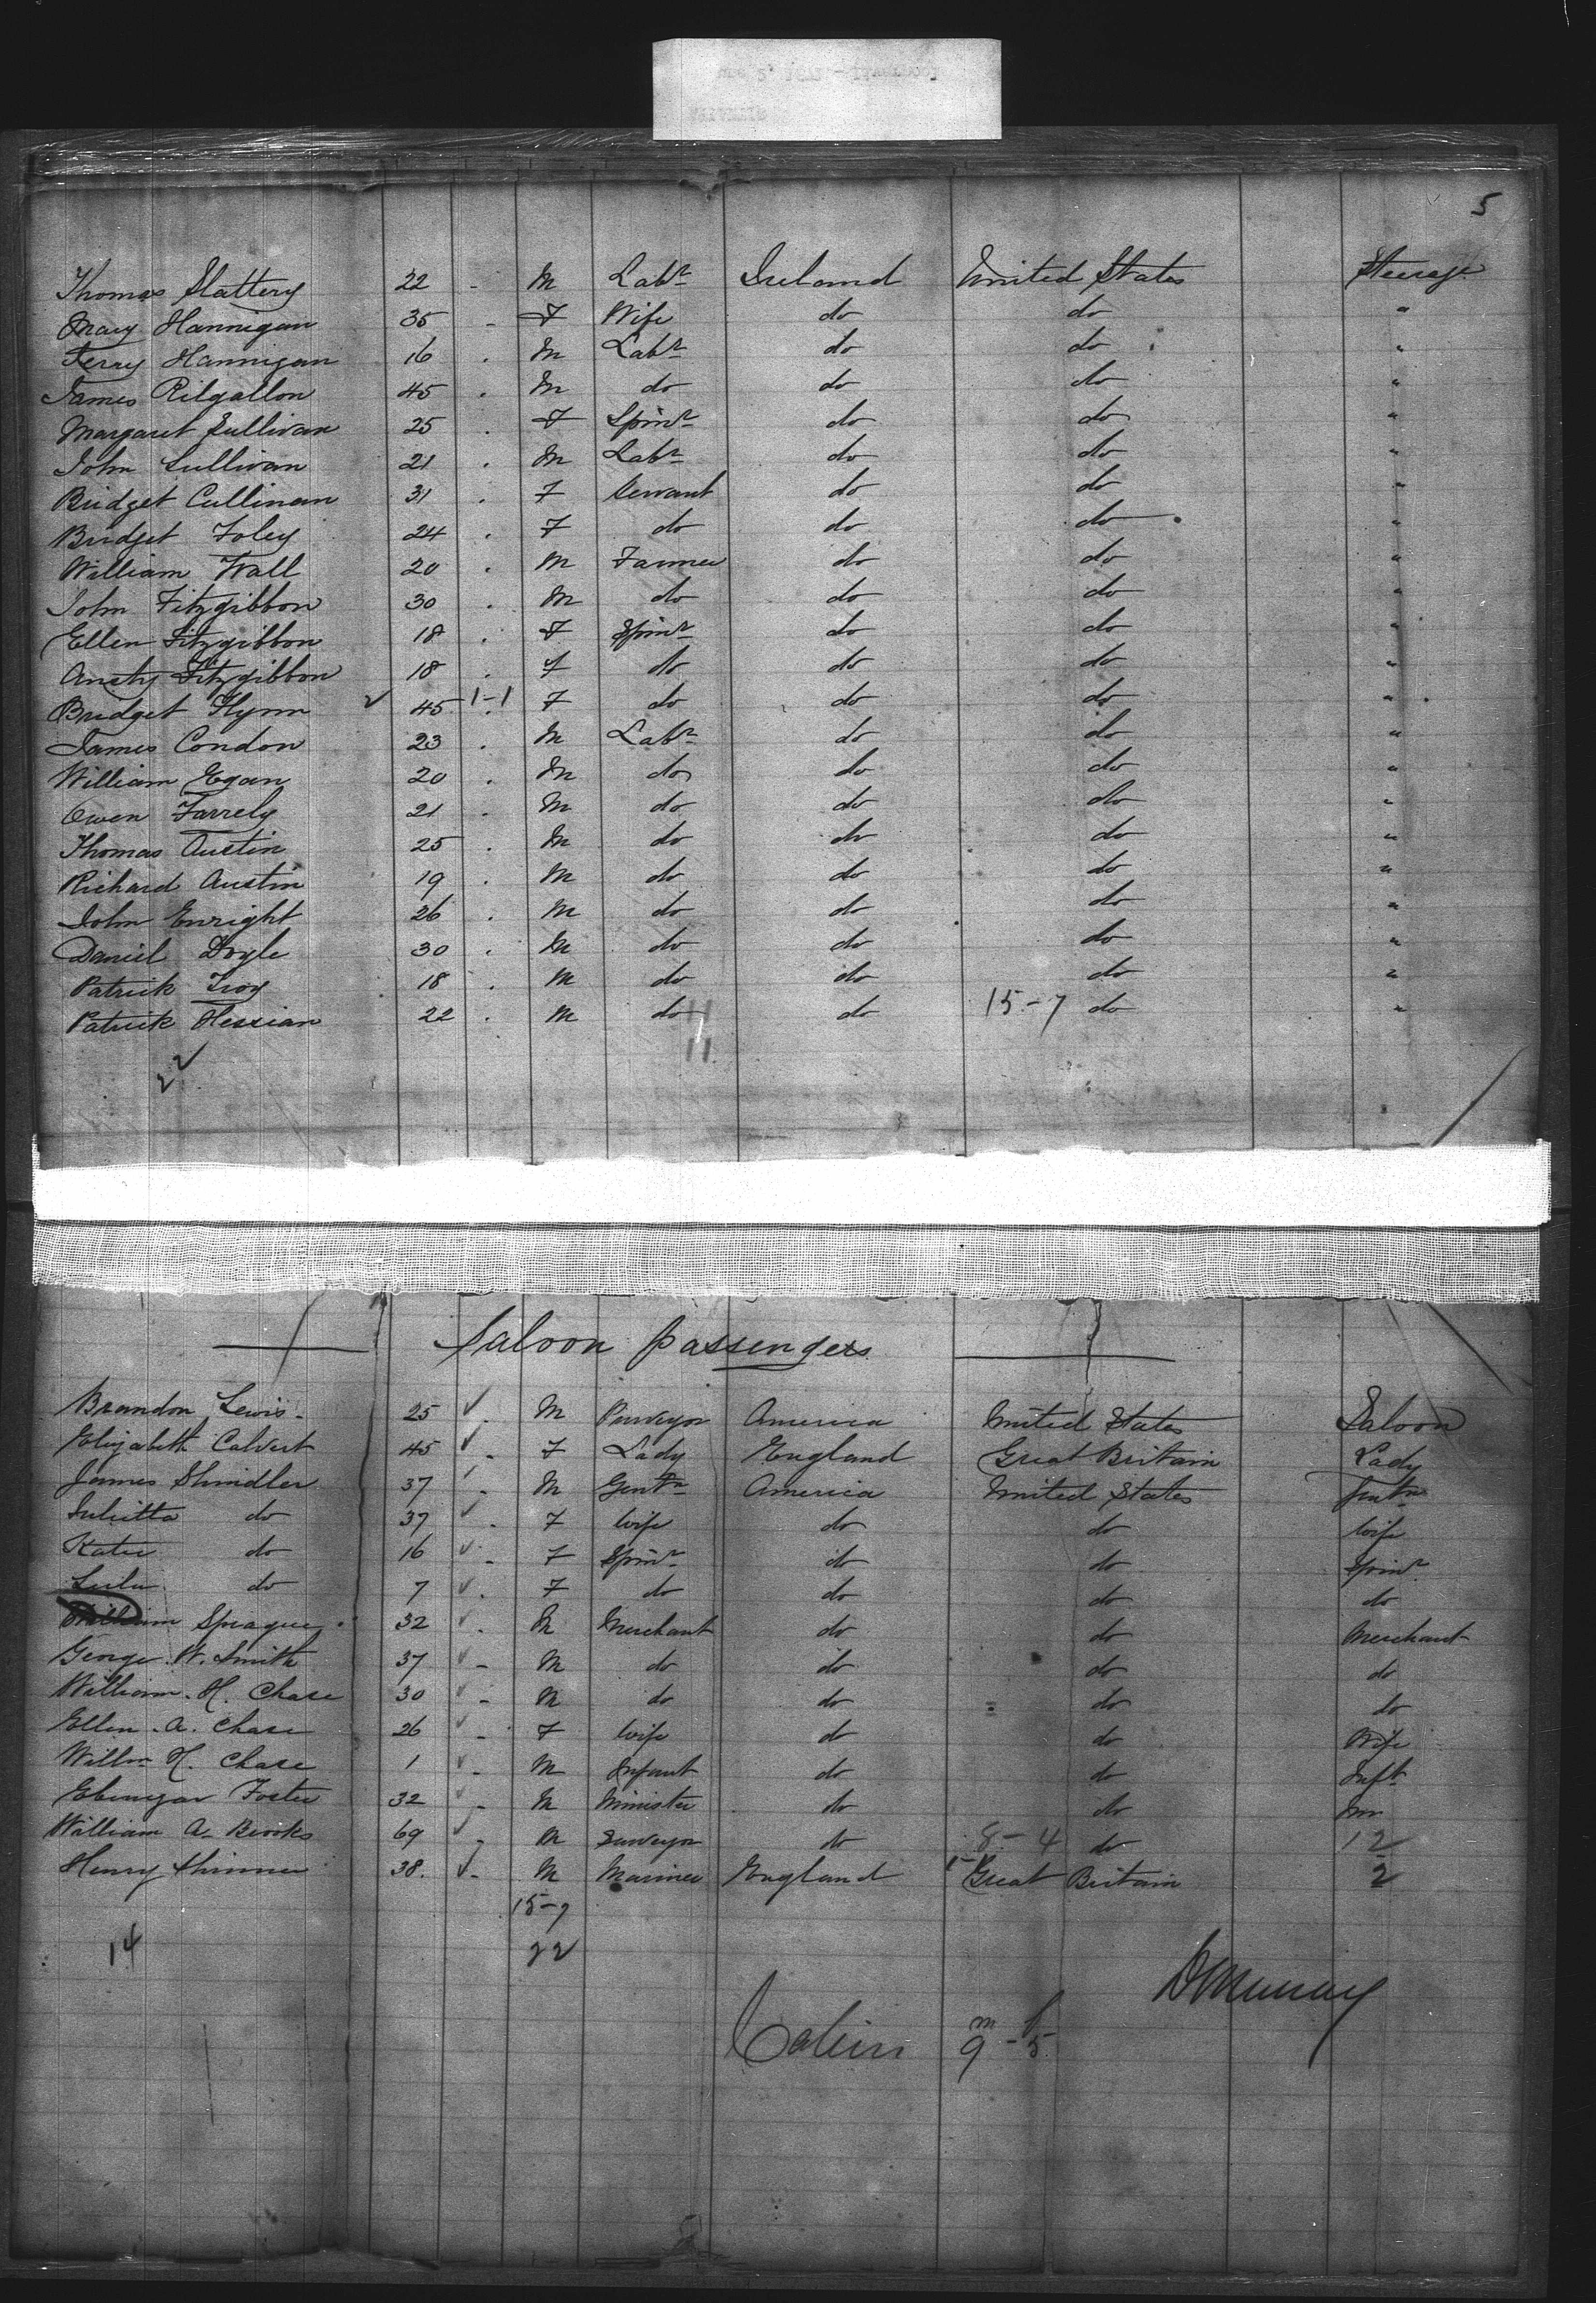 5
Thomas Slattery 22 - M Labr Ireland United States Steerage
Mary Hannigan 35 - F Wife do do "
Hannigan 16 . M Labr do do "
James Kilgallon 45 . M do do do "
Margaret Sullivan 25 . F Spinr do do "
John Sullivan 21 . M Labr do do "
Bridget Cullinan 31 . F Servant do do "
Bridget Foley 24 . F do do do "
William Wall 20 . M Farmer do do "
John Fitzgibbon 30 . M do do do "
Ellen Fitzgibbon 18 . F Spinr do do "
Ansty Fitzgibbon 18 . F do do do "
Bridget Flynn 45 1-1 F do do do "
James Condon 23 . M Labr do do "
William Egan 20 . M do do do "
Owen Farrely 21 . M do do do "
Thomas Austin 25 . M do do do "
Richard Austin 19 . M do do do "
John Enright 26 . M do do do "
Daniel Doyle 30 . M do do do "
Patrick Troy 18 . M do do do "
Patrick Hessian 22 . M do do 15-7 do "
22 11
Saloon Passengers
Brandon Lewis. 25 ✓ - M America United States Saloon
Elizabeth Calvert 45 ✓ - F Lady England Great Britain Lady
James Shindler 37 ✓ - M Gentn America United States Gentn
Julietta do 37 ✓ - F Wife do do Wife
Katie do 16 ✓ - F Spinr do do Spinr
Lulu do 7 ✓ . F do do do do
William Sprague 32 ✓ - M Merchant do do Merchant
George W. Smith 37 ✓ - M do do do do
William. H. Chase 30 ✓ - M do do do do
Ellen. A. Chase 26 ✓ - F Wife do do Wife
Willm H. Chase 1 ✓ - M Infant do do Inft
Ebenezar Foster 32 ✓ - M Minister do do
William A. Brooks 69 ✓ - M Surveyor do 8-4 do 12
Henry Skinner 38. ✓ - M Mariner England 1- Great Britain 2
15-7
14 22
DMurray
Cabin m 9 - f 5